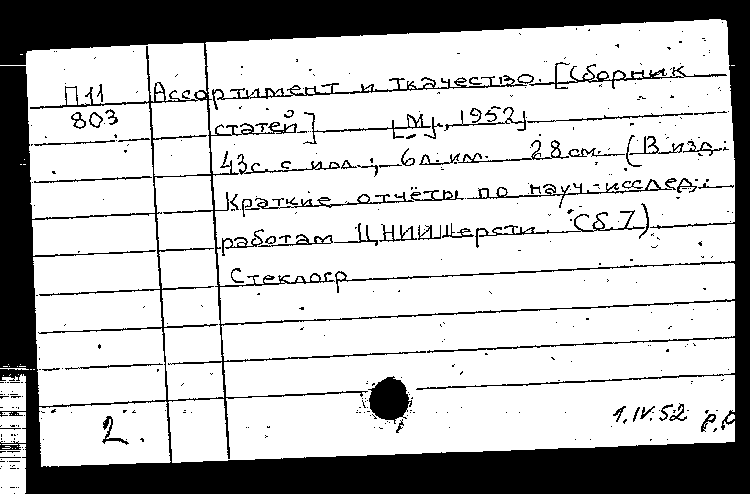 П11 Ассортимент и ткачество. [Сборник
803 статей] [М., 1952]
43с. с илл.; 6л. илл. 28 см. (В изд.:
Краткие отчёты по науч.-исслед.
работам ЦНИИШерсти. Сб. 7).
Стеклогр
2. 1.IV.52 р.р